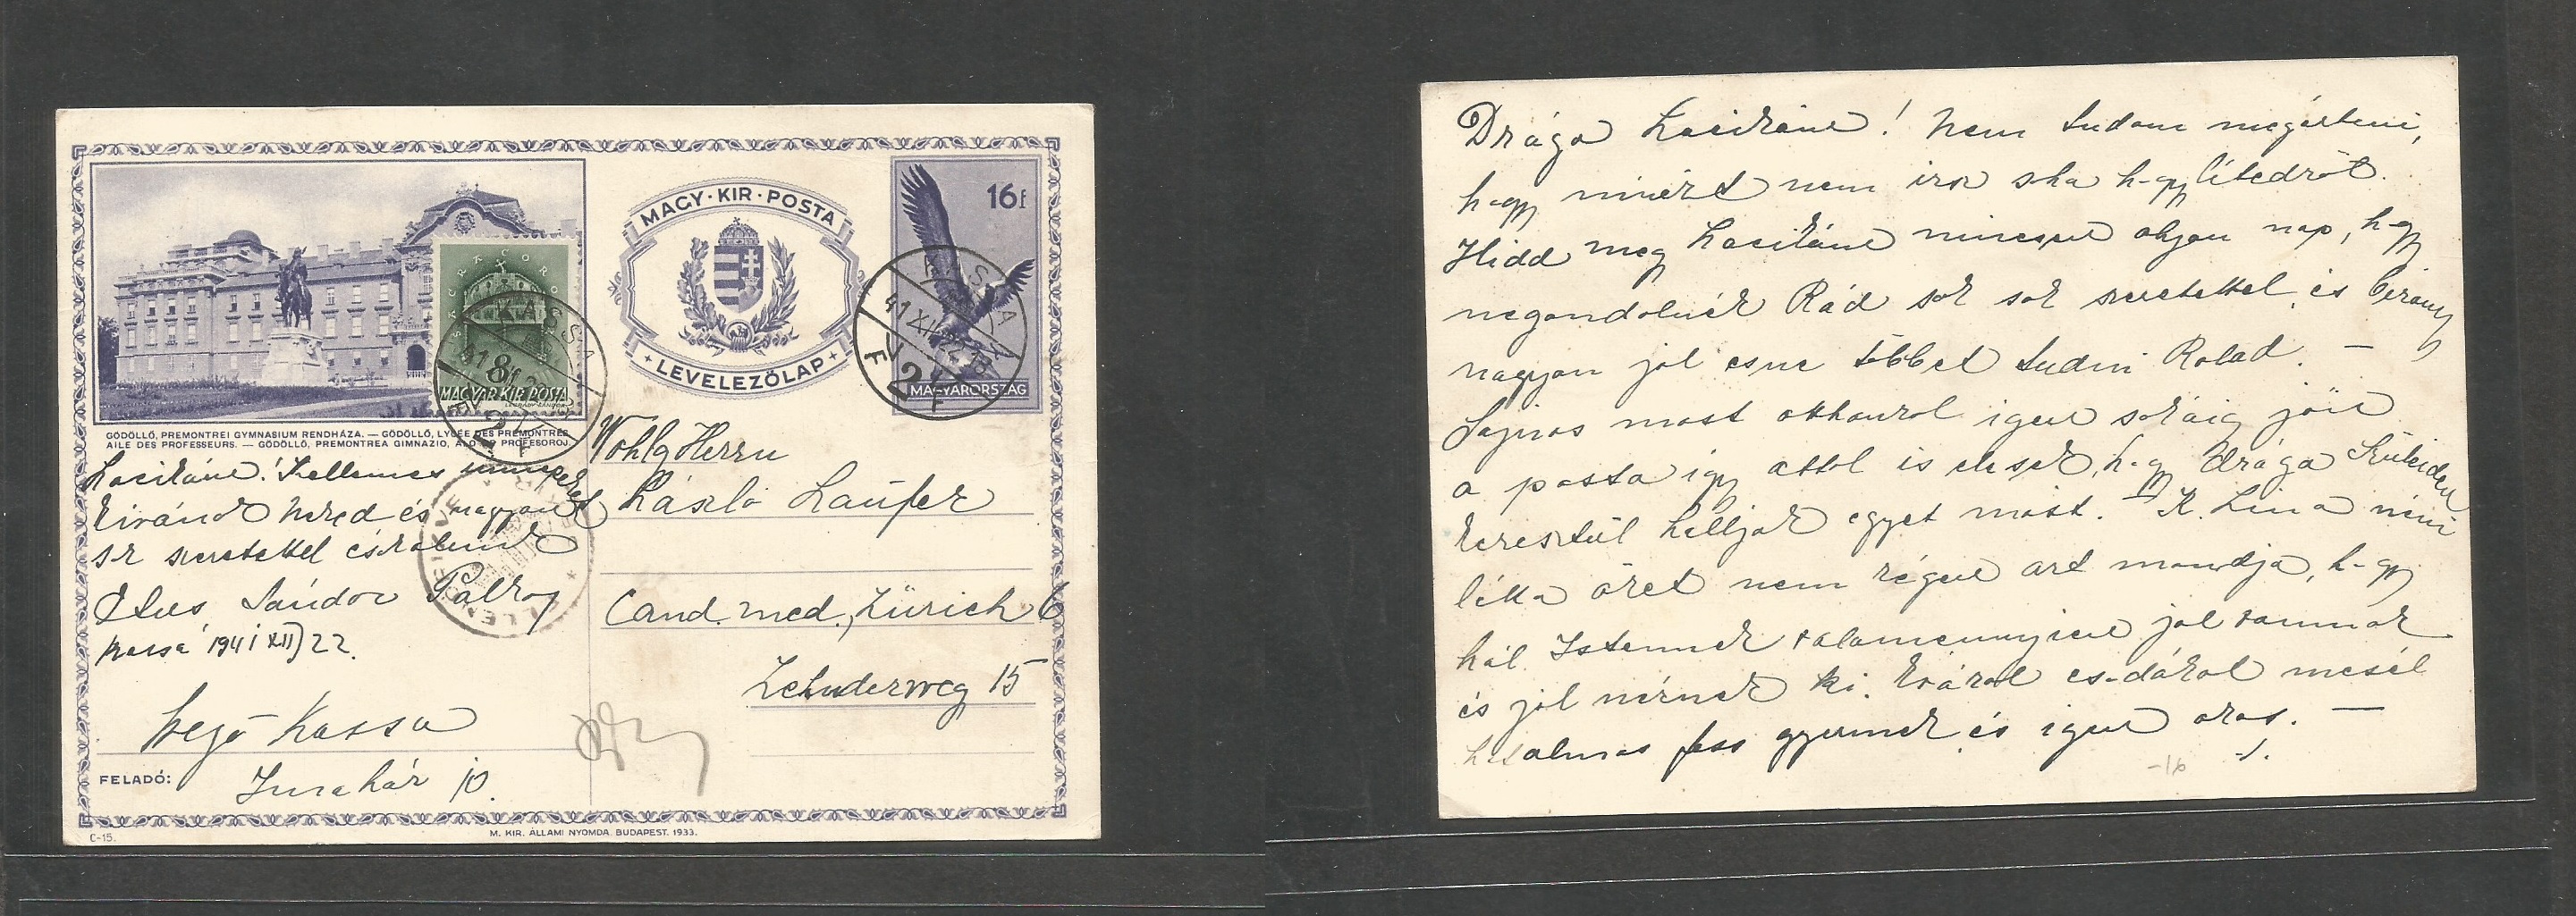 MAGY·KIR·POSTA
LEVELEZŐLAP
16f
MAGYARORSZÁG
KASSA
41 XII 22 18
F 2 F
SACRA CORONA
KASSA
8
MAGYAR KIR. POSTA
GÖDÖLLŐ, PREMONTREI GYMNASIUM RENDHÁZA. — GÖDÖLLŐ, LYCÉE DES PRÉMONTRÉS
AILE DES PROFESSEURS. — GÖDÖLLŐ, PREMONTREA GIMNAZIO, PROFESOROJ.
Lacikáne! Kellemes ünnepeket
kivánok Neked és nagyon
sok szeretettel csókolunk
Sándor
Kassa 1941 XII 22.
Kassa
FELADÓ:
10.
Wohlg Herrn
László Laufer
Cand. med., Zürich 6
Zehnderweg 15
C-15.
M. KIR. ÁLLAMI NYOMDA. BUDAPEST. 1933.
Drága Lacikáne! Nem tudom megérteni,
hogy miért nem irsz soha hogylétedről.
Hidd meg Lacikáne nincsen olyan nap, hogy
negondolnék Rád sok sok szeretettel és bizony
nagyon jól esne többet tudni Rólad. —
Sajnos most otthonról igen sokáig jön
a posta igy attól is elesek, hogy drága Szüleiden
keresztül halljak egyet mást. K. Lina néni
látta őket nem régen azt mondja, hogy
hál Istennek valamennyien jól vannak
és jól néznek ki. Eváról csodákat mesél
hatalmas fess gyermek és igen okos. —
-16